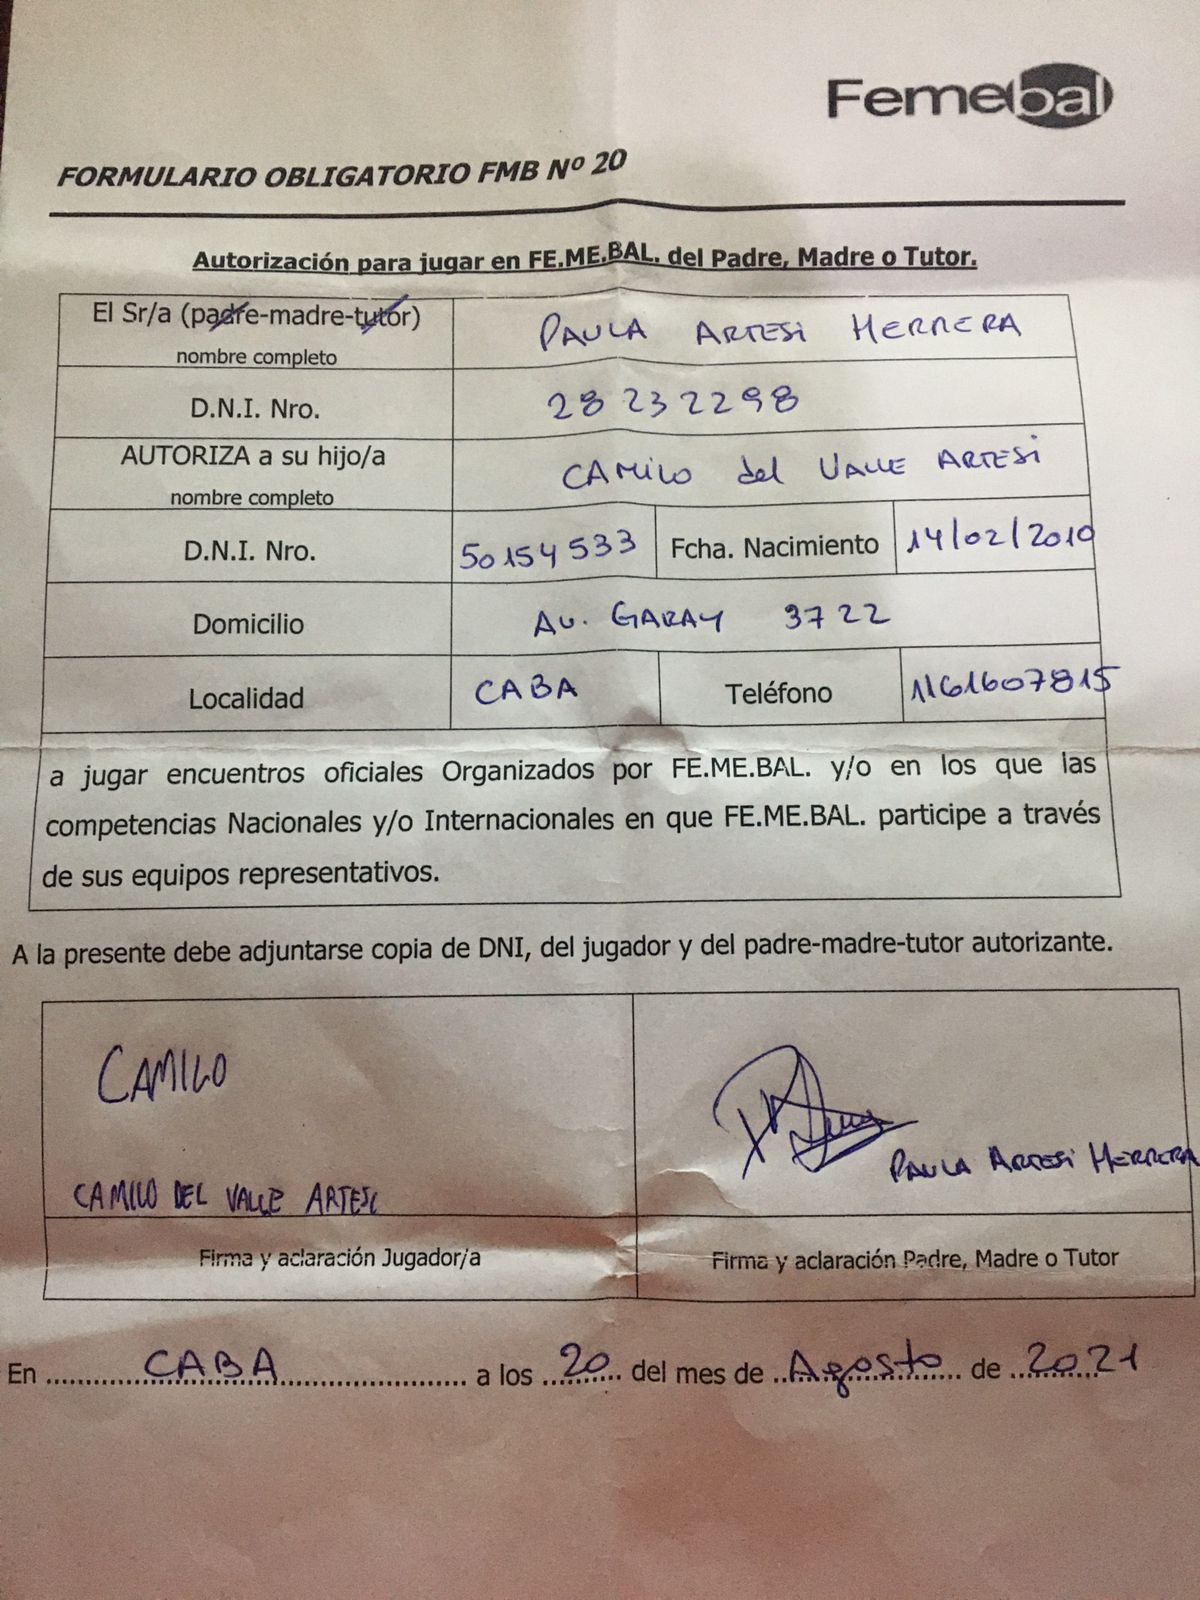 Femebal
FORMULARIO OBLIGATORIO FMB Nº 20
Autorización para jugar en FE.ME.BAL. del Padre, Madre o Tutor.
El Sr/a (padre-madre-tutor) PAULA ARTESI HERRERA
nombre completo
D.N.I. Nro. 28232298
AUTORIZA a su hijo/a CAMILO del VALLE ARTESI
nombre completo
D.N.I. Nro. 50154533 Fcha. Nacimiento 14/02/2010
Domicilio AV. GARAY 3722
Localidad CABA Teléfono 1161607815
a jugar encuentros oficiales Organizados por FE.ME.BAL. y/o en los que las
competencias Nacionales y/o Internacionales en que FE.ME.BAL. participe a través
de sus equipos representativos.
A la presente debe adjuntarse copia de DNI, del jugador y del padre-madre-tutor autorizante.
CAMILO
CAMILO DEL VALLE ARTESI
PAULA ARTESI HERRERA
Firma y aclaración Jugador/a Firma y aclaración Padre, Madre o Tutor
En CABA a los 20 del mes de Agosto de 2021